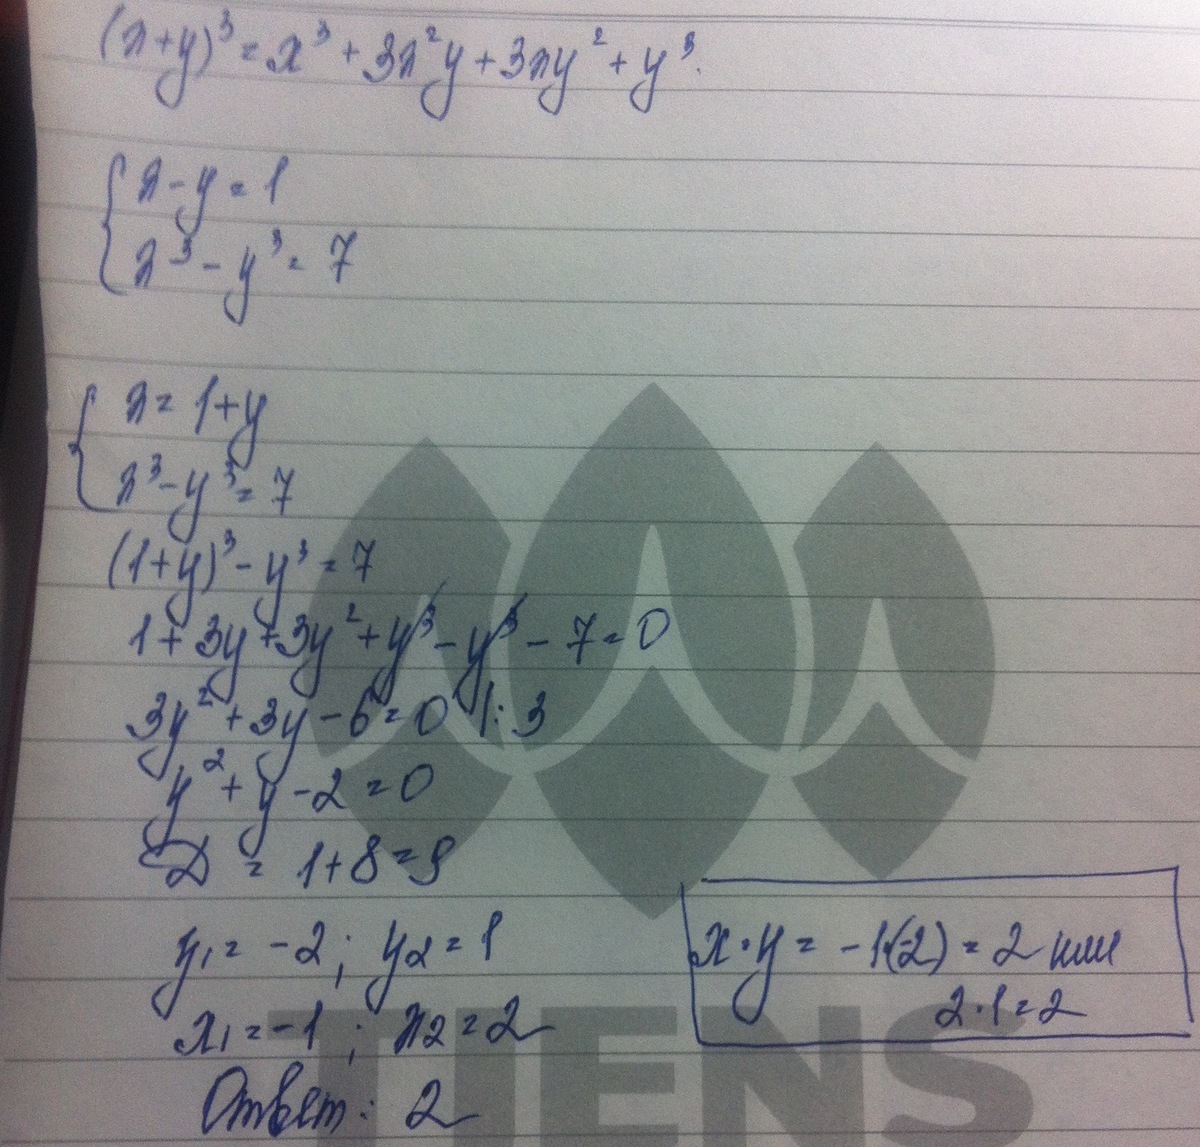 (x+y)³ = x³ + 3x²y + 3xy² + y³.
{ x - y = 1
x³ - y³ = 7
{ x = 1 + y
x³ - y³ = 7
(1+y)³ - y³ = 7
1 + 3y + 3y² + y³ - y³ - 7 = 0
3y² + 3y - 6 = 0 |: 3
y² + y - 2 = 0
D = 1 + 8 = 9
y₁ = -2 ; y₂ = 1
x₁ = -1 ; x₂ = 2
Ответ: 2
x · y = -1·(-2) = 2 или
2 · 1 = 2
TIENS